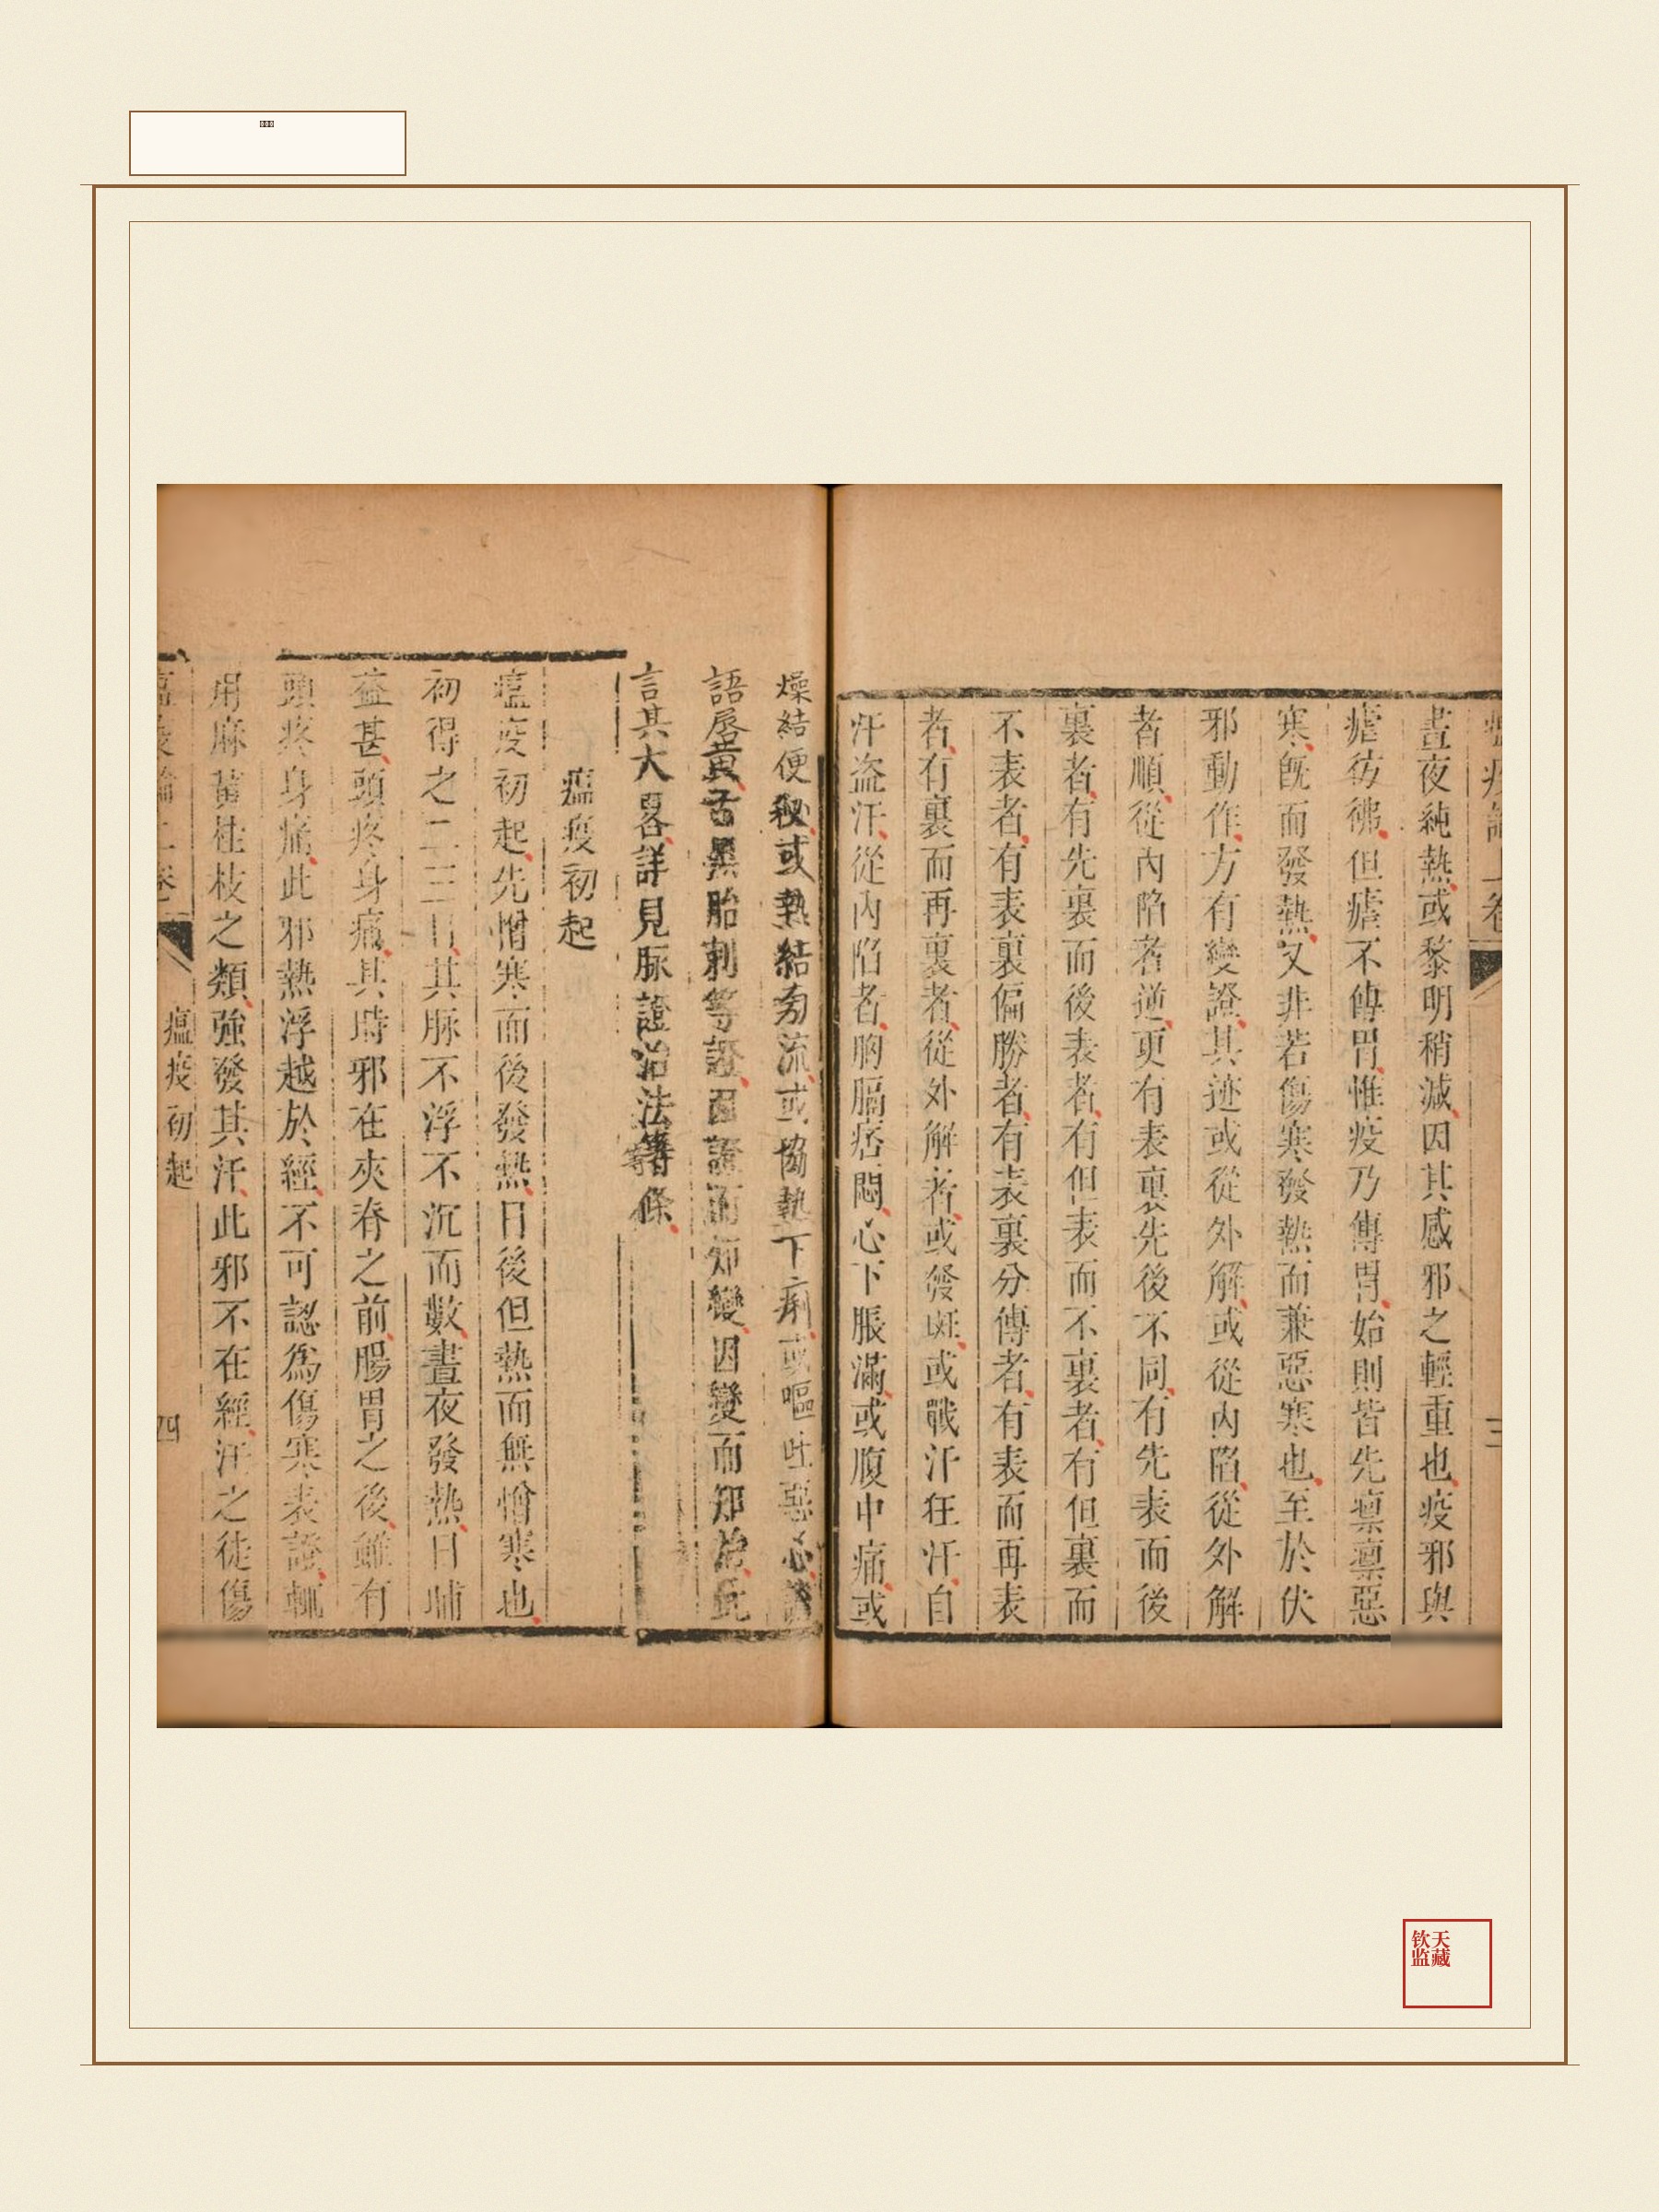 瘟疫論上卷
三
晝夜純熱或黎明稍減因其感邪之輕重也疫邪與
瘧彷彿但瘧不傳胃惟疫乃傳胃始則皆先凜凜惡
寒旣而發熱又非若傷寒發熱而兼惡寒也至於伏
邪動作方有變證其迹或從外解或從內陷從外解
者順從內陷者逆更有表裏先後不同有先表而後
裏者有先裏而後表者有但表而不裏者有但裏而
不表者有表裏偏勝者有表裏分傳者有表而再表
者有裏而再裏者從外解者或發斑或戰汗狂汗自
汗盗汗從內陷者胸膈痞悶心下脹滿或腹中痛或
燥結便秘或熱結旁流或協熱下痢或嘔吐惡心譫
語唇黃舌黑胎刺等證因證而知變因變而知治此
言其大畧詳見脉證治法等條
瘟疫初起
瘟疫初起先憎寒而後發熱日後但熱而無憎寒也
初得之二三日其脉不浮不沉而數晝夜發熱日晡
益甚頭疼身痛其時邪在夾脊之前腸胃之後雖有
頭疼身痛此邪熱浮越於經不可認為傷寒表證輒
用麻黃桂枝之類強發其汗此邪不在經汗之徒傷
瘟疫論上卷
瘟疫初起
四
天藏
钦监